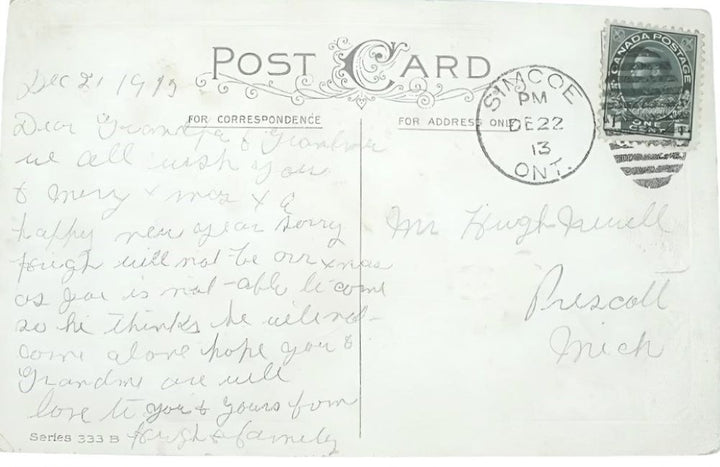 POST CARD
Dec 21 1913
FOR CORRESPONDENCE
Dear Grandpa & Grandma
we all wish you
a merry xmas & a
happy new year sorry
Hugh will not be over xmas
as you is not able to come
so he thinks he will not
come alone hope you &
Grandma are well
love to you & yours from
Hugh & family
Series 333 B
FOR ADDRESS ONLY
SIMCOE
PM
DE 22
13
ONT.
CANADA POSTAGE
ONE
CENT
Mr Hugh
Prescott
Mich